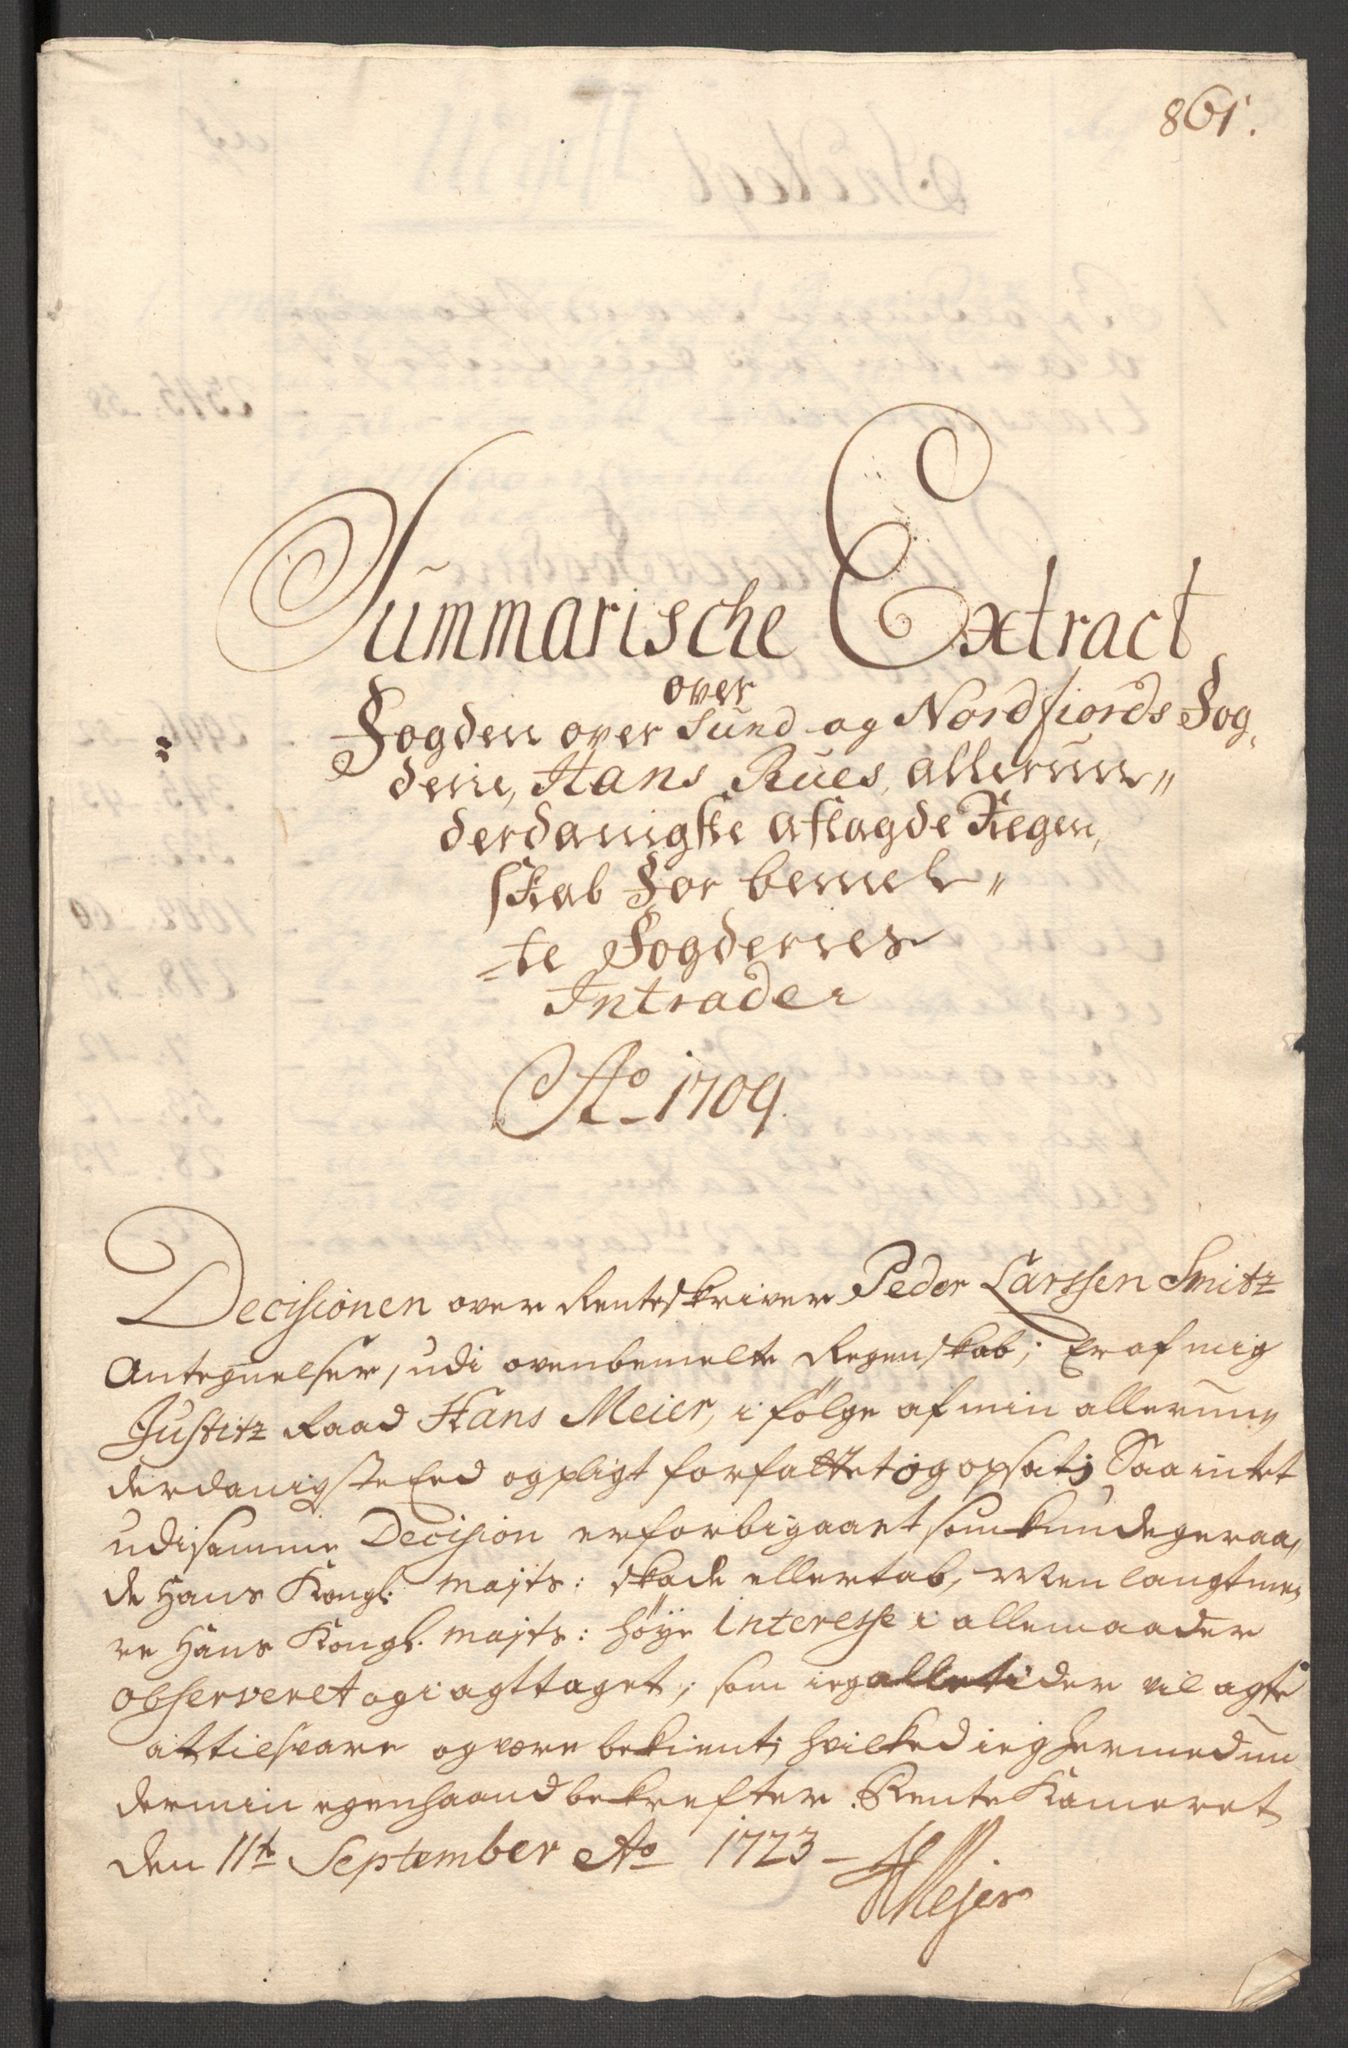 861.
Summarische Extract
over
Fogden over Sund og Nordfiords Fog,
derie, Hans Rües, allerun„
derdanigste aflagde Regen,
skab For bemel„
„te Fogderies
Intrader
Ao 1709.
Decisionen over Renteskriver Peder Larssen Smitz
Antegnelser, udi ovenbemelte Regenskab; Er af mig
Justitz Raad Hans Meier, i følge af min allerun„
derdanigste Eed og pligt forfattet og opsat; Saa intet
udi samme Decision er forbigaaet som kunde geraa„
de Hans Kongl: Majts: skade eller tab, Men langt me„
re Hans Kongl: Majts: høye Interesse i alle maader
observeret og i agttaget; som ieg alletider vil agte
at tilsvare og være bekient; hvilked ieg hermed un
der min egen haand bekrefter. Rente Kameret
den 11te September Ao 1723 –
HMejer